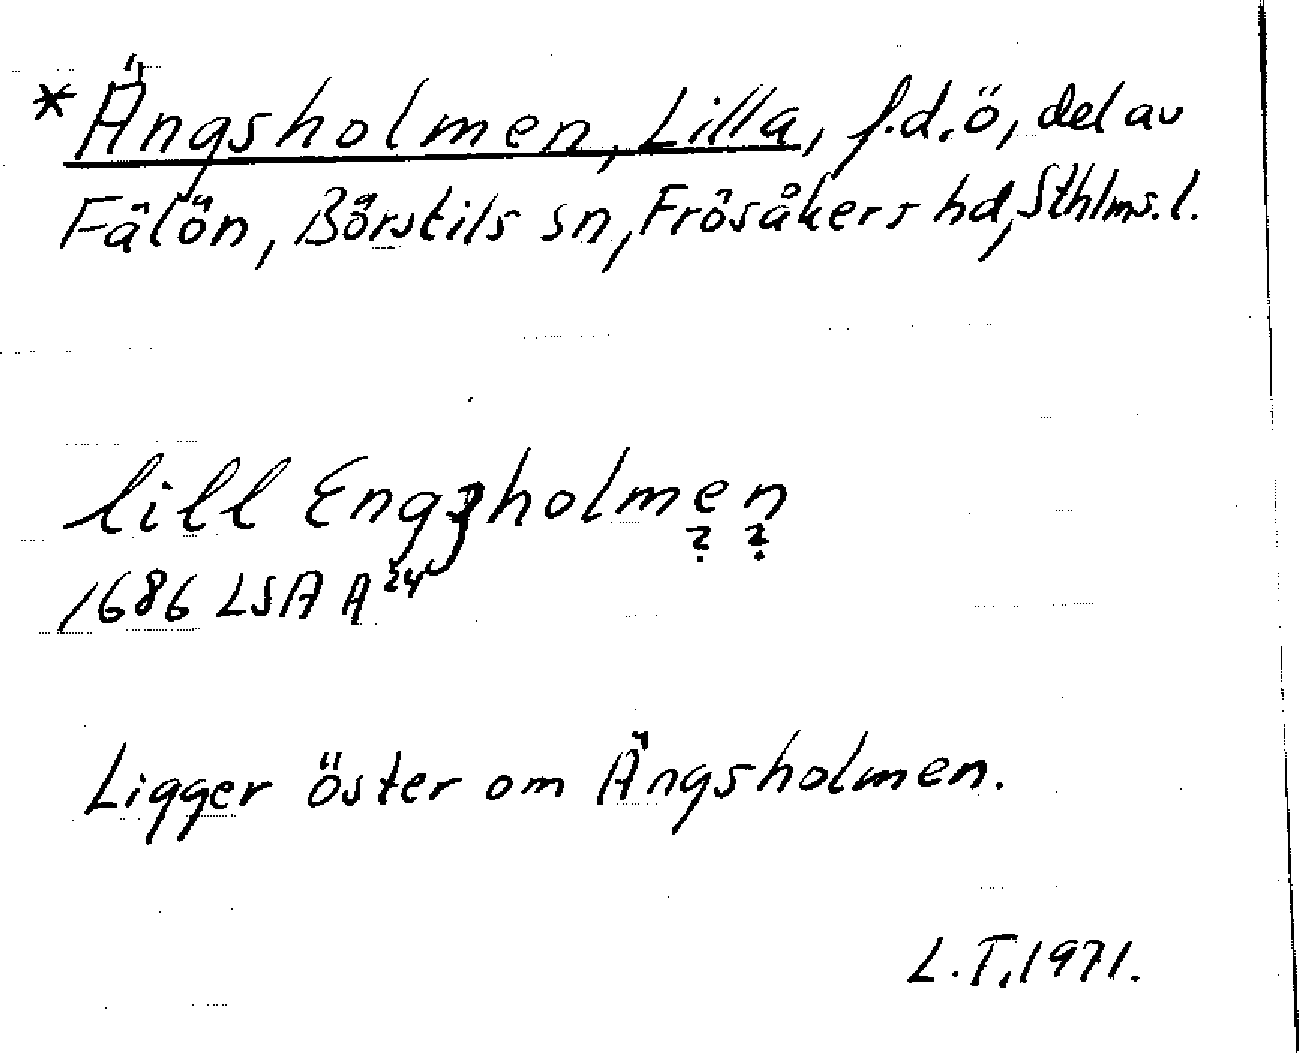 * Ängsholmen, Lilla, f.d. ö, del av
Fälön, Börstils sn, Frösåkers hd, Sthlms. l.
lill Engzholmen
? ?
1686 LSA A 24
Ligger öster om Ängsholmen.
L.T. 1971.